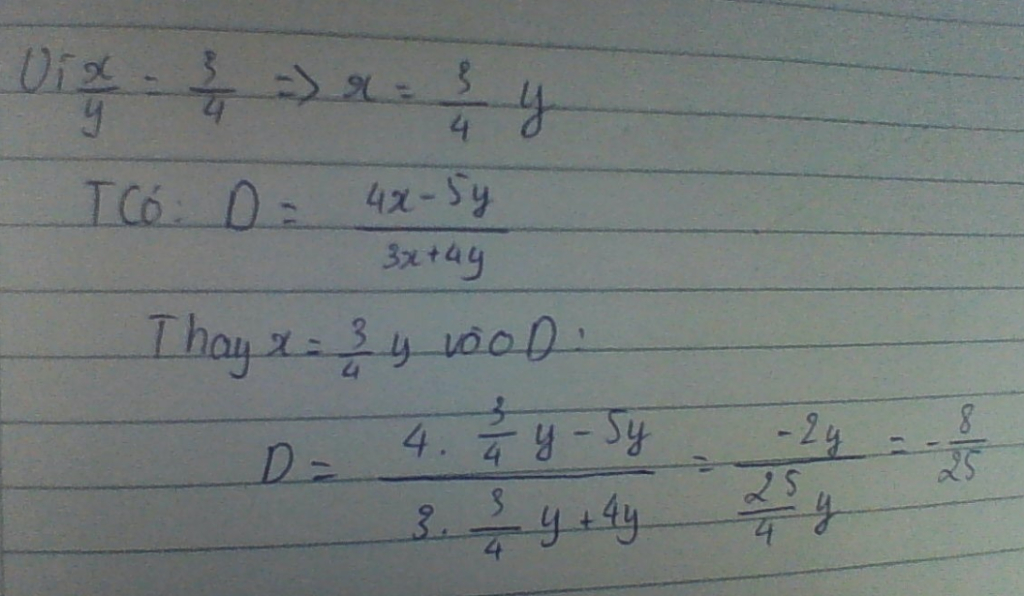 Vì x/y = 3/4 => x = 3/4 y
TCó: D = (4x-5y)/(3x+4y)
Thay x = 3/4 y vào D:
D = (4. 3/4 y - 5y)/(3. 3/4 y + 4y) = (-2y)/(25/4 y) = -8/25